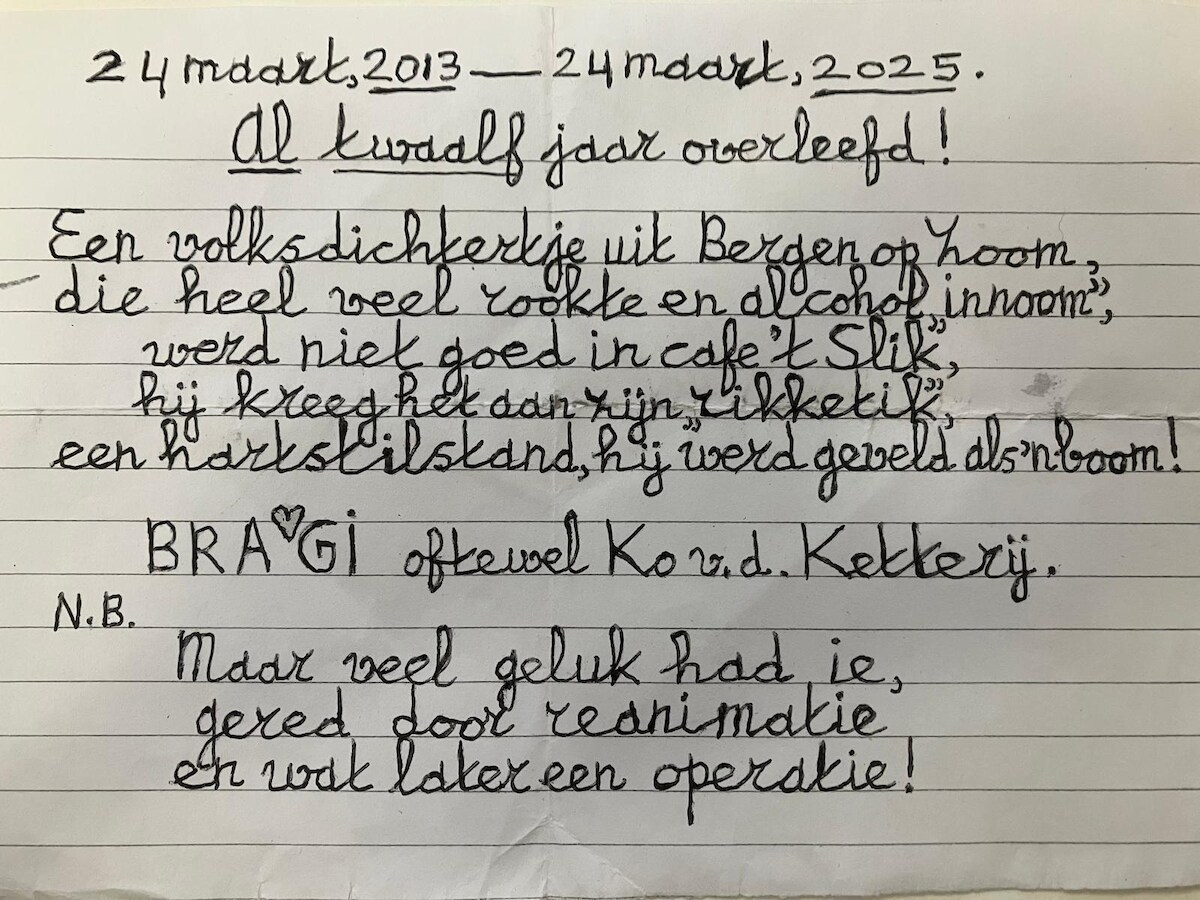 24 maart, 2013 — 24 maart, 2025.
Al twaalf jaar overleefd!
Een volksdichtertje uit Bergen op Zoom,
die heel veel rookte en alcohol „innoom”,
werd niet goed in cafe „'t Slik”,
hij kreeg het aan zijn „rikketik”,
een hartstilstand, hij werd geveld als 'n boom!
BRA♡Gi oftewel Ko v.d. Ketterij.
N.B.
Maar veel geluk had ie,
gered door reanimatie
en wat later een operatie!